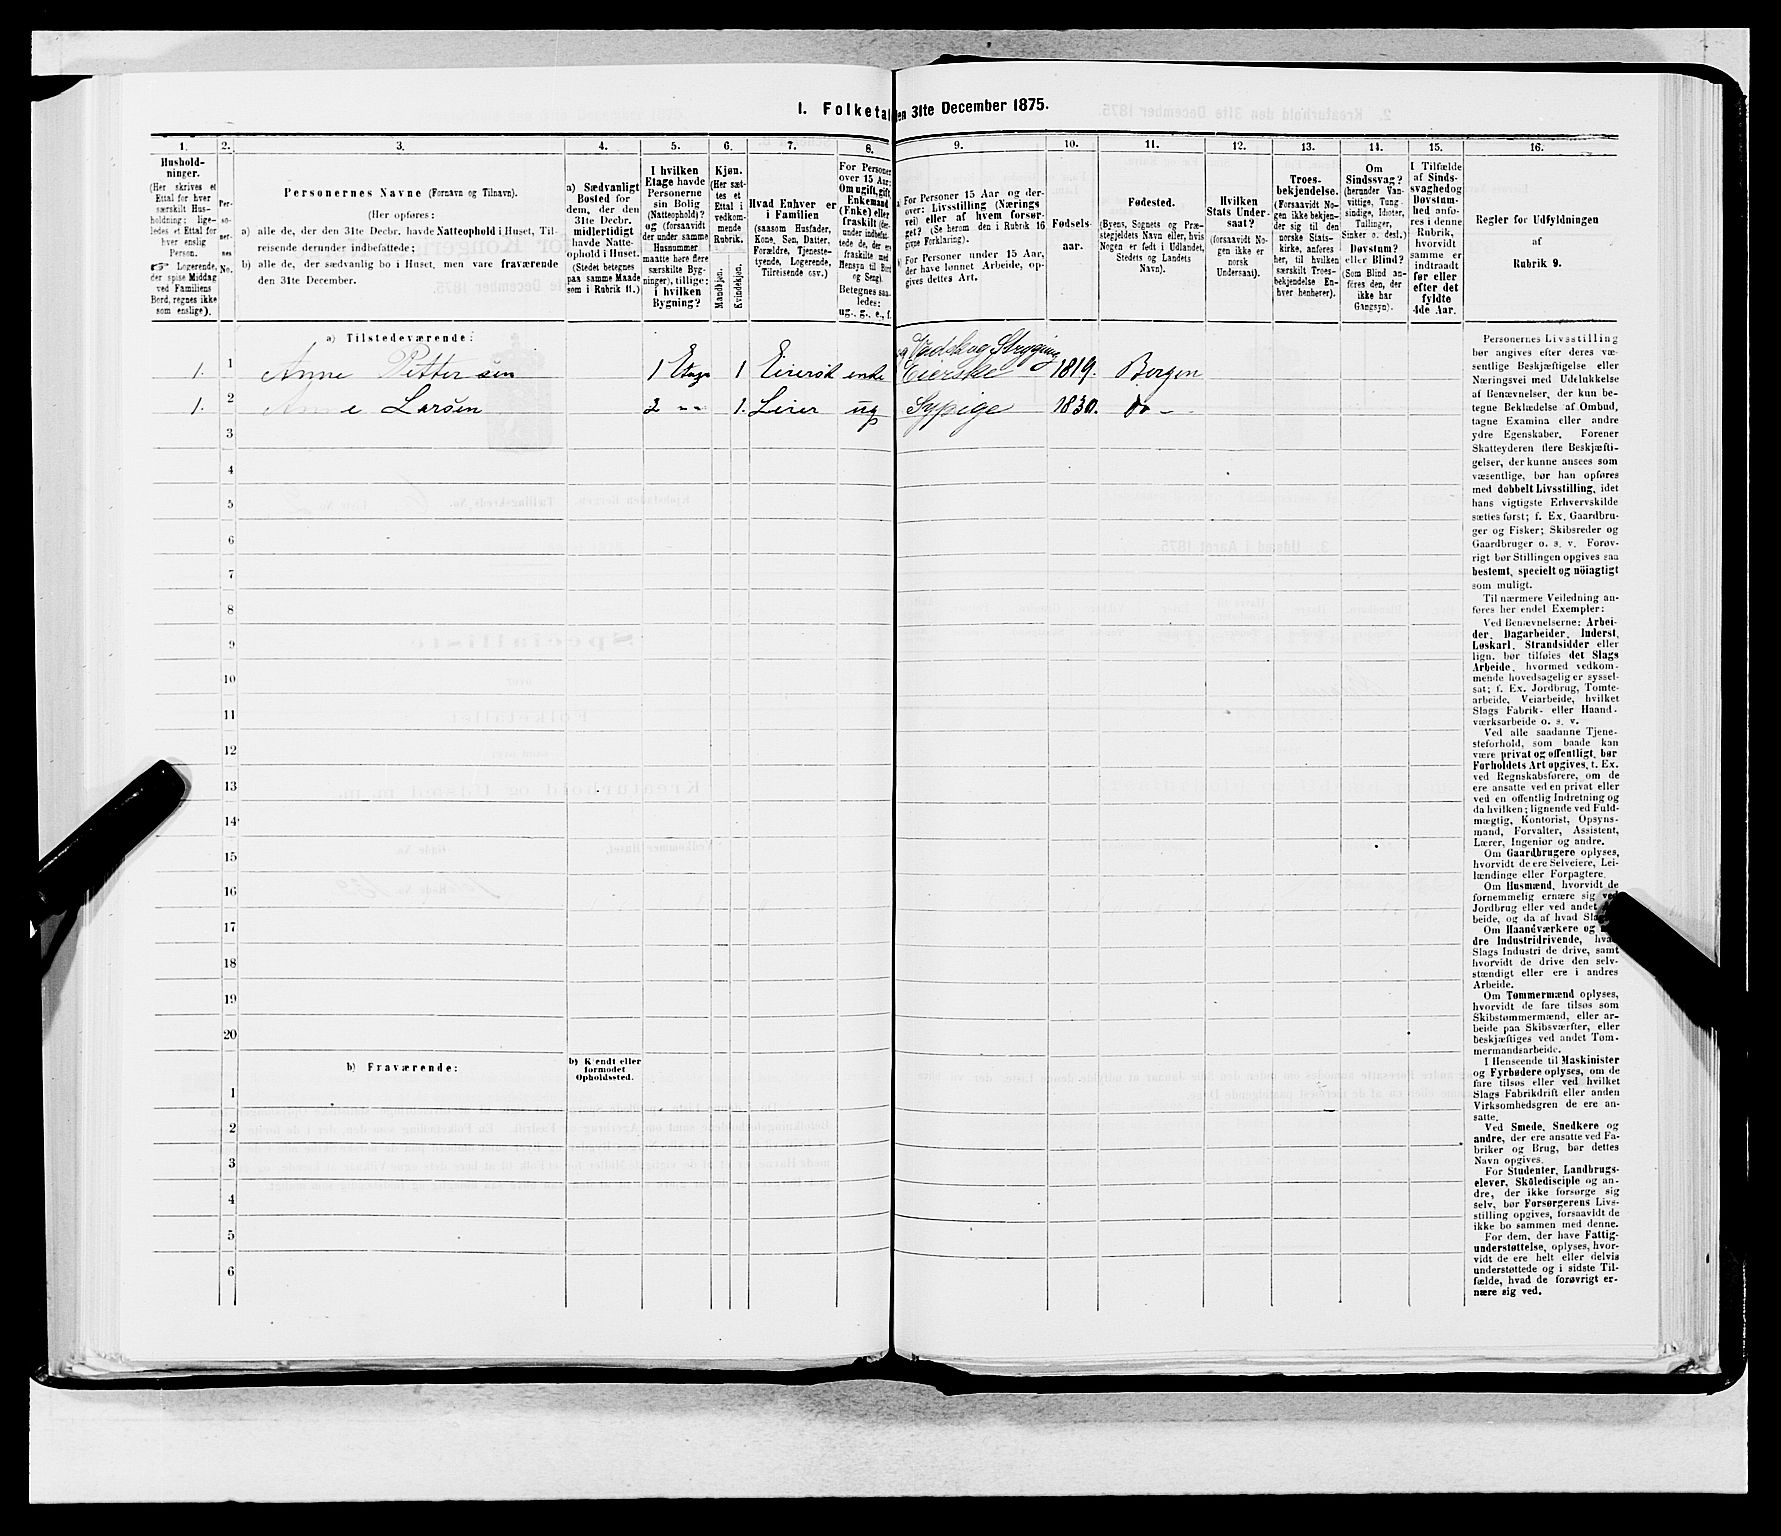 I. Folketal
en 31te December 1875.
1.
2.
3.
4.
5.
6.
7.
8.
9.
10.
11.
12.
13.
14.
15.
16.
Hushold-
ninger.
(Her skrives et
Ettal for hver
særskilt Hus-
holdning; lige-
ledes et Ettal for
hver enslig
Person.
☞ Logerende,
der spise Middag
ved Familiens
Bord, regnes ikke
som enslige).
Per-
so-
ner-
nes
No.
Personernes Navne (Fornavn og Tilnavn).
(Her opføres:
a) alle de, der den 31te Decbr. havde Natteophold i Huset, Til-
reisende derunder indbefattede;
b) alle de, der sædvanlig bo i Huset, men vare fraværende
den 31te December.
a) Sædvanligt
Bosted for
dem, der den
31te Decbr.
midlertidigt
havde Natte-
ophold i Huset.
(Stedet betegnes
paa samme Maade
som i Rubrik 11.)
I hvilken
Etage havde
Personerne
sin Bolig
(Natteophold)?
og (forsaavidt
der under samme
Husnummer
maatte høre flere
særskilte Byg-
ninger), tillige:
i hvilken
Bygning?
Kjøn.
(Her sæt-
tes et
Ettal i
vedkom-
mende
Rubrik.
Mandkjøn.
Kvindekjøn.
Hvad Enhver er
i Familien
(saasom Husfader,
Kone, Søn, Datter,
Forældre, Tjeneste-
tyende, Logerende,
Tilreisende osv.)
For Personer
over 15 Aar:
Om ugift, gift,
Enkemand
(Enke) eller
fraskilt (der-
under indbefat-
tede de, der ere
fraskilte med
Hensyn til Bord
og Seng).
Betegnes saa-
ledes:
ug., g., e., f.
a) For Personer 15 Aar og der-
over: Livsstilling (Nærings
vei) eller af hvem forsør-
get? (Se herom den i Rubrik 16
givne Forklaring).
b) For Personer under 15 Aar,
der have lønnet Arbeide, op-
gives dettes Art.
Fødsels-
aar.
Fødested.
(Byens, Sognets og Præ-
stegjeldets Navn eller, hvis
Nogen er født i Udlandet,
Stedets og Landets
Navn).
Hvilken
Stats Under-
saat?
(forsaavidt No-
gen ikke er
norsk
Undersaat).
Troes-
bekjendelse.
(Forsaavidt No-
gen ikke bekjen-
der sig til den
norske Stats-
kirke, anføres
her, til hvilken
særskilt Troes-
bekjendelse En-
hver henhører).
Om
Sindssvag?
(herunder Van-
vittige, Tung-
sindige, Idioter,
Tullinger,
Sinker o. desl.)
Døvstum?
eller Blind?
(Som Blind an-
føres den, der
ikke har
Gangsyn).
I Tilfælde
af Sinds-
svaghed og
Døvstum-
hed anfø-
res i denne
Rubrik,
hvorvidt
samme er
indtraadt
før eller
efter det
fyldte
4de Aar.
Regler for Udfyldningen
af
Rubrik 9.
a) Tilstedeværende:
1. 1 Anne Pettersen 1 Etage 1 Eierske enke Vadsk og Strygning Eierske 1819. Bergen
1. 2 Anne Larsen 2 " " 1. Leier ug Sypige 1830. do -
3
4
5
6
7
8
9
10
11
12
13
14
15
16
17
18
19
20
b) Fraværende:
b) Kjendt eller
formodet
Opholdssted.
1
2
3
4
5
6
Personernes Livsstilling
bør angives efter deres væ-
sentlige Beskjæftigelse eller
Næringsvei med Udelukkelse
af Benævnelser, der kun be-
tegne Beklædelse af Ombud,
tagne Examina eller andre
ydre Egenskaber. Forener
Skatteyderen flere Beskjæfti-
gelser, der kunne ansees som
væsentlige, bør han opføres
med dobbelt Livsstilling, idet
hans vigtigste Erhvervskilde
sættes først; f. Ex. Gaardbru-
ger og Fisker; Skibsreder og
Gaardbruger o. s. v. Forøv-
rigt bør Stillingen opgives saa
bestemt, specielt og nöiagtigt
som muligt.
Til nærmere Veiledning an-
føres her endel Exempler:
Ved Benævnelserne: Arbei-
der, Dagarbeider, Inderst,
Løskarl, Strandsidder eller
lign. bør tilføies det Slags
Arbeide, hvormed vedkom-
mende hovedsagelig er syssel-
sat; f. Ex. Jordbrug, Tomte-
arbeide, Veiarbeide, hvilket
Slags Fabrik- eller Haand-
værksarbeide o. s. v.
Ved alle saadanne Tjene-
steforhold, som baade kan
være privat og offentligt, bør
Forholdets Art opgives, f. Ex.
ved Regnskabsførere, om de
ere ansatte ved en privat eller
ved en offentlig Indretning og
da hvilken; lignende ved Fuld-
mægtig, Kontorist, Opsyns-
mand, Forvalter, Assistent,
Lærer, Ingeniør og andre.
Om Gaardbrugere oplyses,
hvorvidt de ere Selveiere, Lei-
lændinge eller Forpagtere.
Om Husmænd, hvorvidt de
fornemmelig ernære sig ved
Jordbrug eller ved andet
beide, og da af hvad
Om Haandværkere og
dre Industridrivende,
Slags Industri de drive, samt
hvorvidt de drive den selv-
stændigt eller ere i andres
Arbeide.
Om Tømmermænd oplyses,
hvorvidt de fare tilsøs som
Skibstømmermænd, eller ar-
beide paa Skibsværfter, eller
beskjæftiges ved andet Tøm-
mermandsarbeide.
I Henseende til Maskinister
og Fyrbødere oplyses, om de
fare tilsøs eller ved hvilket
Slags Fabrikdrift eller anden
Virksomhedsgren de ere an-
satte.
Ved Smede, Snedkere og
andre, der ere ansatte ved Fa-
briker og Brug, bør dettes
Navn opgives.
For Studenter, Landbrugs-
elever, Skoledisciple og an-
dre, der ikke forsørge sig
selv, bør Forsørgerens Livs-
stilling opgives, forsaavidt de
ikke bo sammen med denne.
For dem, der have Fattig-
understøttelse, oplyses, hvor-
vidt de ere helt eller delvis
understøttede og i sidste Til-
fælde, hvad de forøvrigt er-
nære sig ved.